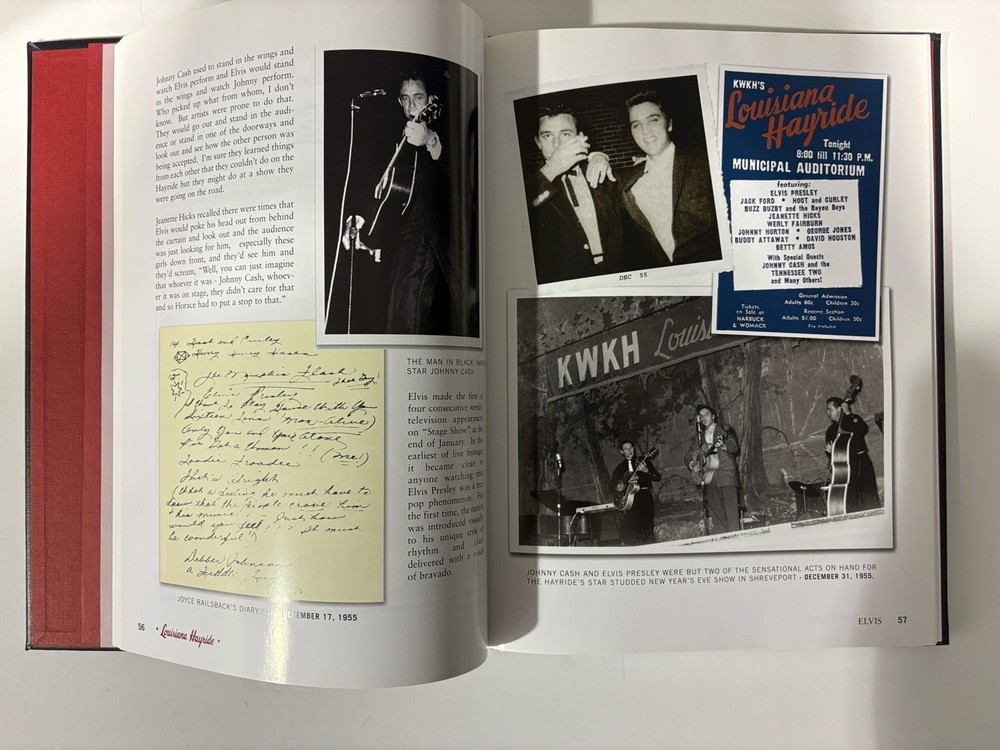 Johnny Cash used to stand in the wings and
watch Elvis perform and Elvis would stand
in the wings and watch Johnny perform.
Who picked up what from whom, I don't
know. But artists were prone to do that.
They would go out and stand in the audi-
ence or stand in one of the doorways and
look out and see how the other person was
being accepted. I'm sure they learned things
from each other that they couldn't do on the
Hayride but they might do at a show they
were going on the road.
Jeanette Hicks recalled there were times that
Elvis would poke his head out from behind
the curtain and look out and the audience
was just looking for him, especially these
girls down front, and they'd see him and
they'd scream, "Well, you can just imagine
that whoever it was - Johnny Cash, whoev-
er it was on stage, they didn't care for that
and so Horace had to put a stop to that."
14 Hoot and Curley
The Memphis Flash
Elvis Presley
Play House With You
Sixteen Tons (Man-alive)
Only You and You Alone
I've Got a Woman!! (Me!)
Toodie Froodee
That's Alright
(What a feeling he must have to
know that the people crave him
& his music! Just how
would you feel??? It must
be wonderful!)
Debber Johnson
JOYCE RAILSBACK'S DIARY DECEMBER 17, 1955
56 • Louisiana Hayride •
THE MAN IN BLACK,
STAR JOHNNY CASH
Elvis made the first of
four consecutive weekly
television appearances
on "Stage Show" at the
end of January. In the
earliest of live footage,
it became clear to
anyone watching that
Elvis Presley was a true
pop phenomenon. For
the first time, the nation
was introduced visually
to his unique style of
rhythm and blues
delivered with a
of bravado.
DEC 55
KWKH'S
Louisiana
Hayride
Tonight
8:00 till 11:30 P.M.
MUNICIPAL AUDITORIUM
featuring:
ELVIS PRESLEY
JACK FORD • HOOT and CURLEY
BUZZ BUZBY and the Bayou Boys
JEANETTE HICKS
WERLY FAIRBURN
JOHNNY HORTON • GEORGE JONES
BUDDY ATTAWAY • DAVID HOUSTON
BETTY AMOS
With Special Guests
JOHNNY CASH and the
TENNESSEE TWO
and Many Others!
Tickets
on Sale at
HARBUCK
& WOMACK
General Admission
Adults 60c Children 30c
Reserve Section
Adults $1.00 Children 50c
Tax Included
KWKH Louis
JOHNNY CASH AND ELVIS PRESLEY WERE BUT TWO OF THE SENSATIONAL ACTS ON HAND FOR
THE HAYRIDE'S STAR STUDDED NEW YEAR'S EVE SHOW IN SHREVEPORT - DECEMBER 31, 1955.
ELVIS 57